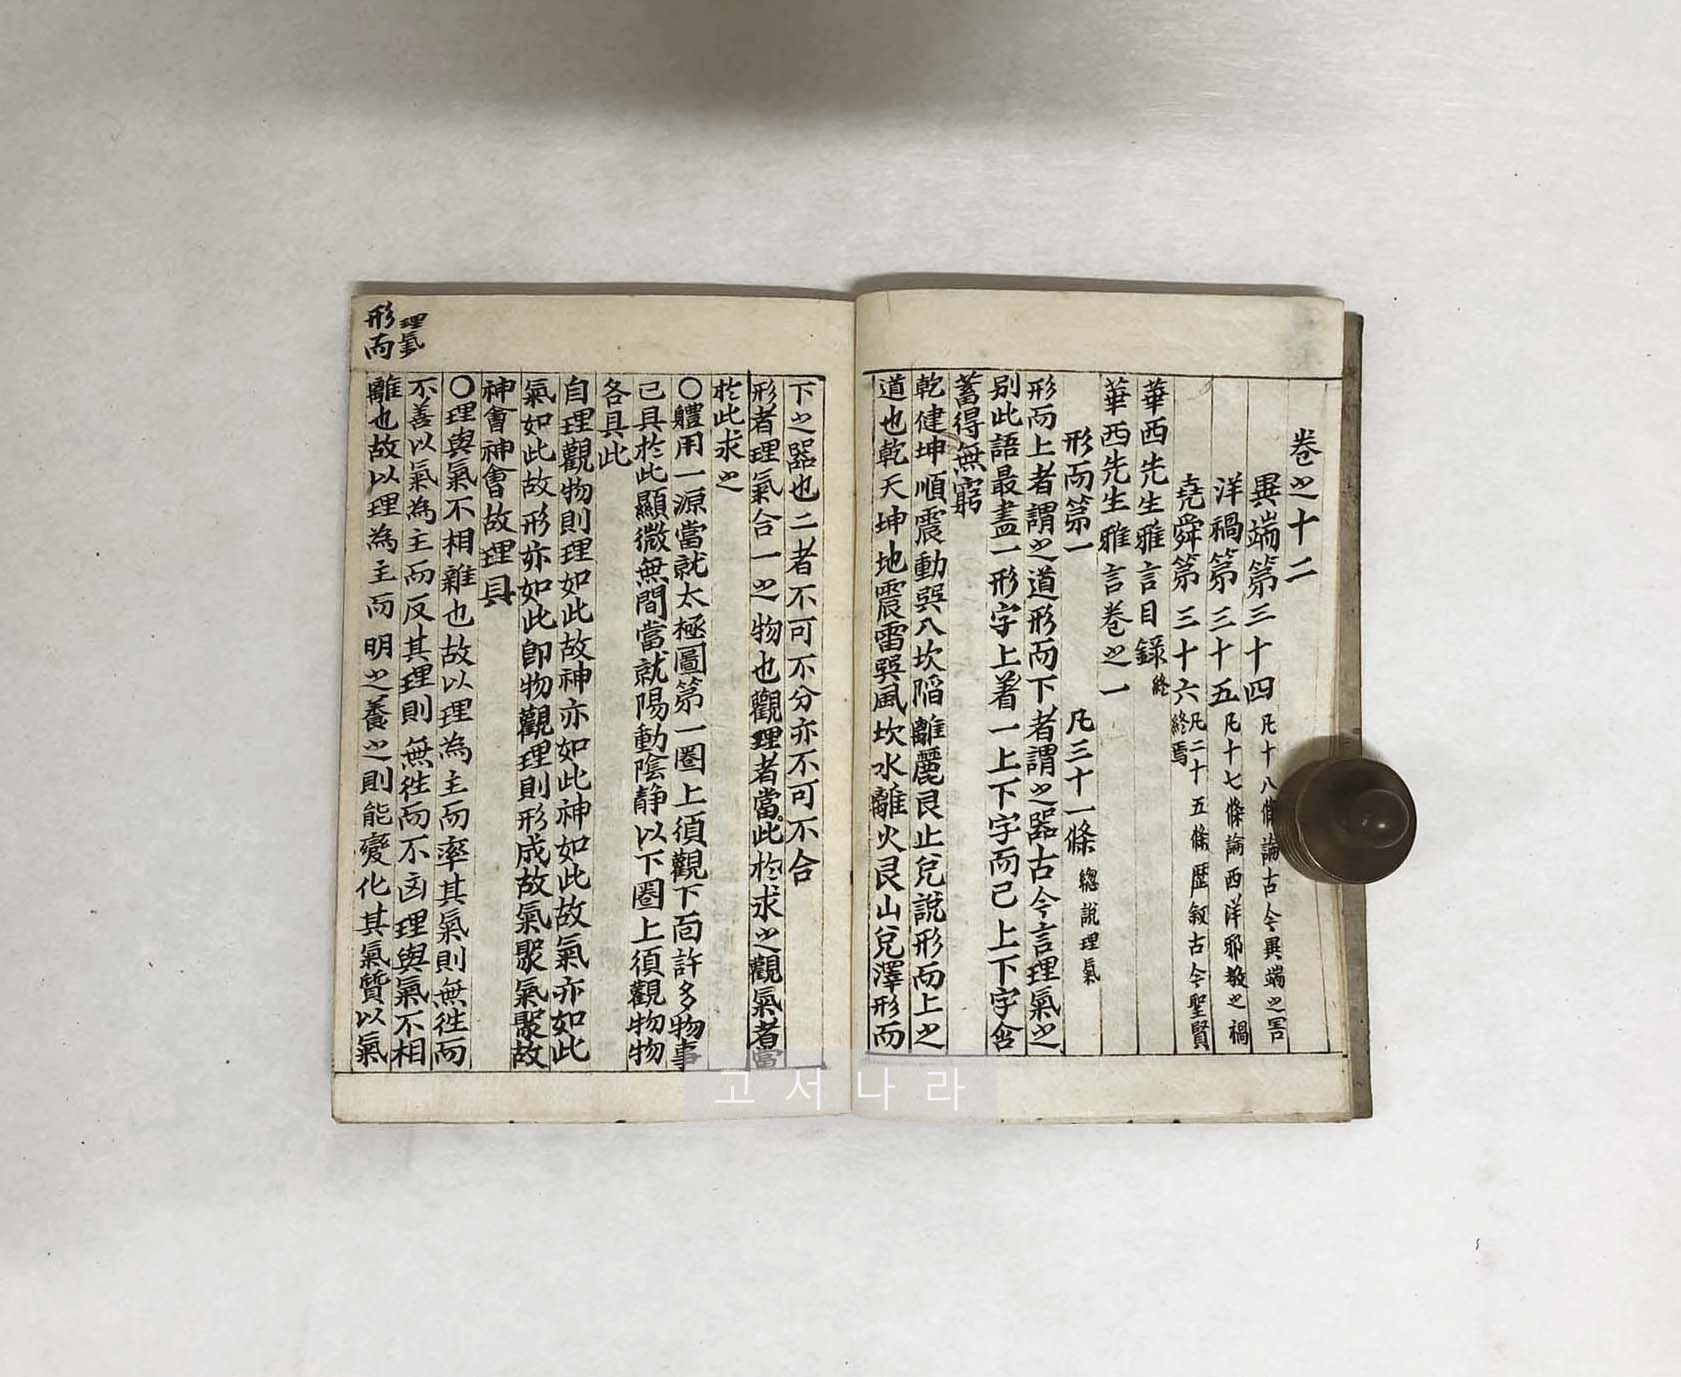 卷之十二
異端第三十四 凡十八條論古今異端之害
洋禍第三十五 凡十七條論西洋邪教之禍
堯舜第三十六 凡二十五條歷叙古今聖賢
終焉
華西先生雅言目錄 終
華西先生雅言卷之一
形而第一 凡三十一條 總說理氣
形而上者謂之道形而下者謂之器古今言理氣之
別此語最盡一形字上着一上下字而已上下字含
蓄得無窮
乾健坤順震動巽入坎陷離麗艮止兌說形而上之
道也乾天坤地震雷巽風坎水離火艮山兌澤形而
下之器也二者不可不分亦不可不合
形者理氣合一之物也觀理者當此於求之觀氣者當
於此求之
○體用一源當就太極圖第一圈上須觀下面許多物事
已具於此顯微無間當就陽動陰静以下圈上須觀物物
各具此
自理觀物則理如此故神亦如此神如此故氣亦如此
氣如此故形亦如此卽物觀理則形成故氣聚氣聚故
神會神會故理具
○理與氣不相雜也故以理為主而率其氣則無徃而
不善以氣為主而反其理則無徃而不凶理與氣不相
離也故以理為主而明之養之則能變化其氣質以氣
理氣
形而
고서나라